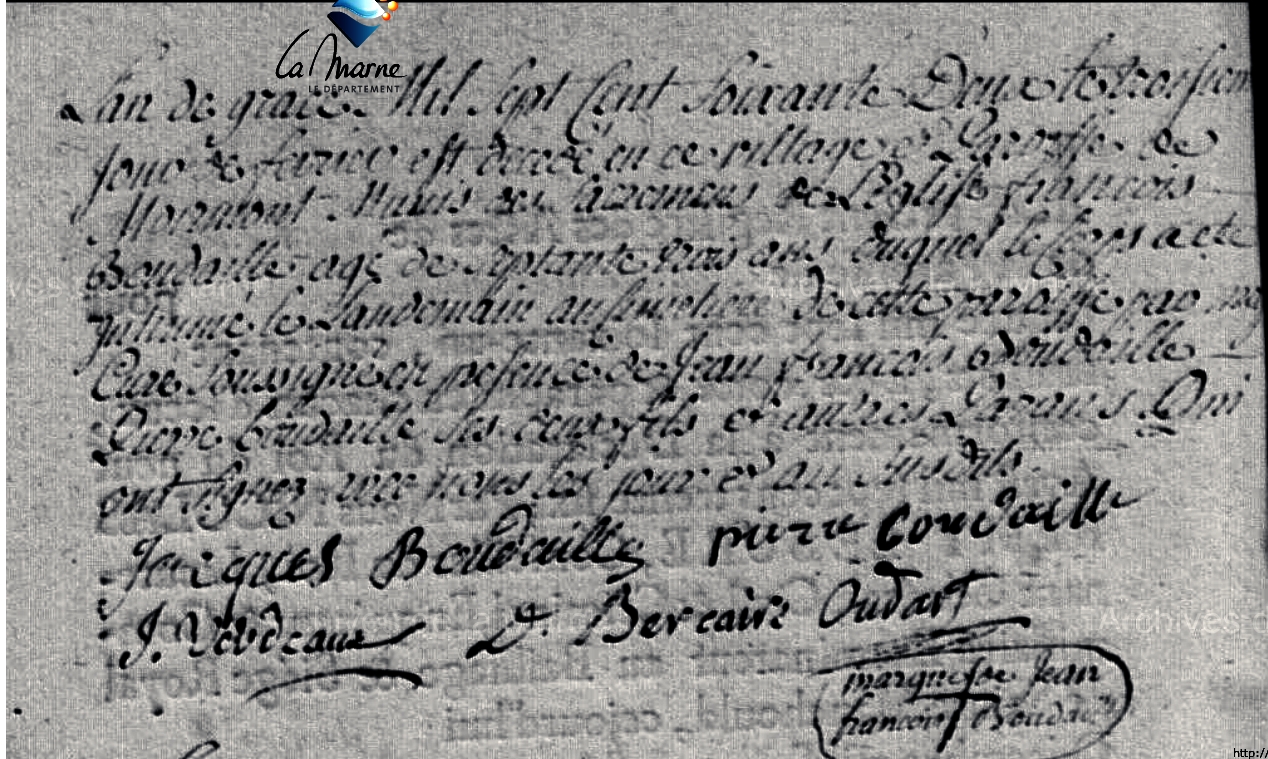 La Marne
LE DÉPARTEMENT
Lan de grace Mil Sept Cent Soixante Deux le troisiem
jour de fevrier est decedé en ce village et Paroisse de
Mormont Munis des Sacremens de LEglise francois
Boudaille agé de septante trois ans duquel le corps a eté
inhumé le Landemain au simetiere de cette paroisse par moy
Curé soussigné en presence de Jean francois Boudaille
Pierre boudaille ses deux fils et autres Parans Qui
ont signez avec nous les jour et an susdits.
Jacques Boudaille pierre boudaille
J. Bercaire Oudart
marque de Jean
francois Boudaille
Archives
http://